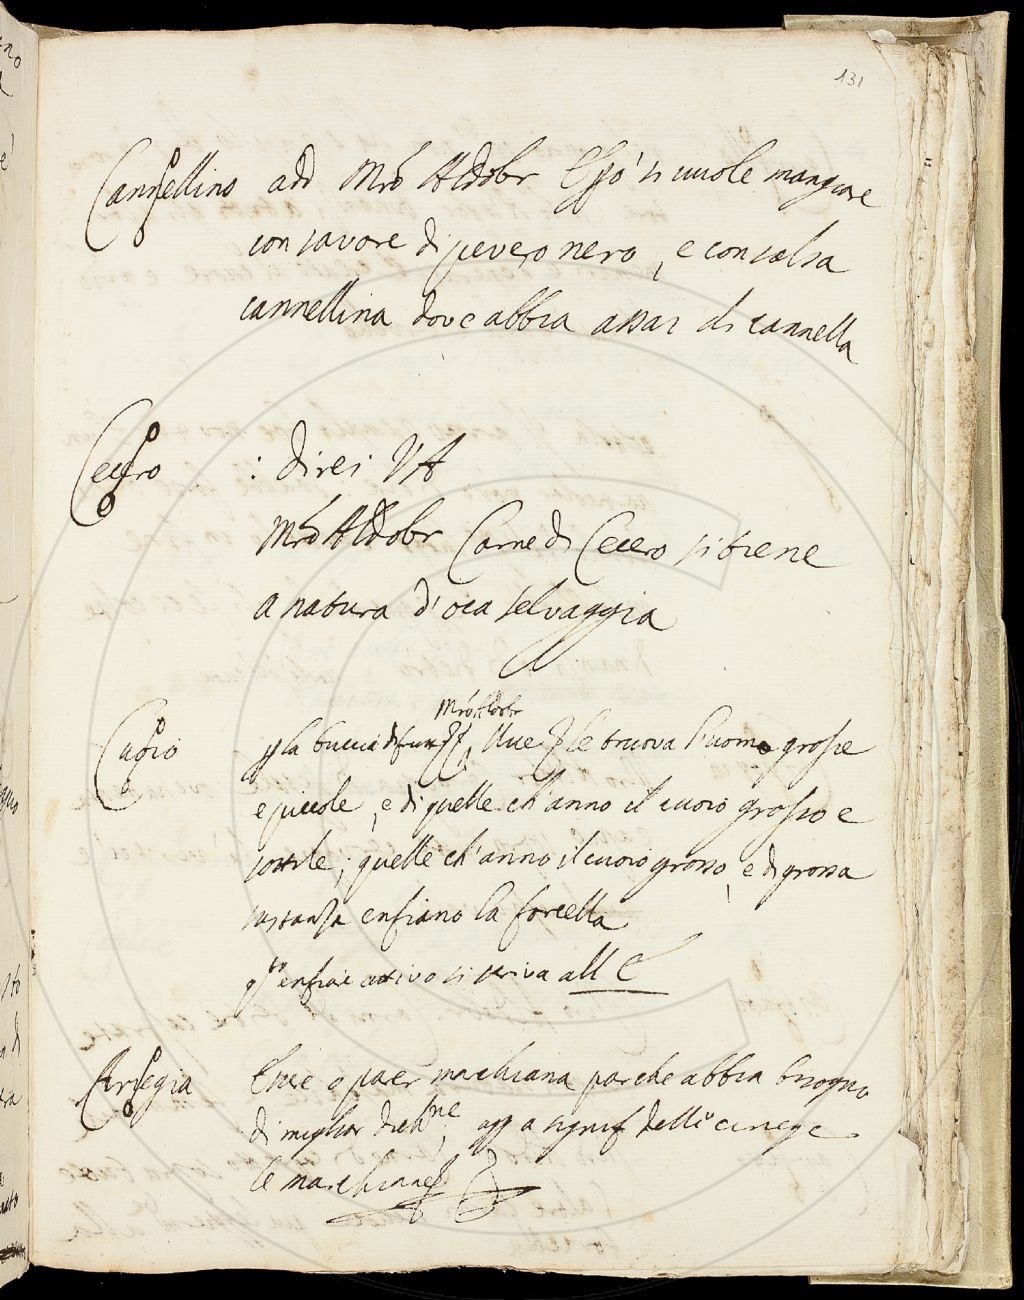 131
Cannellino add Mro Aldobr Esso si vuole mangiare
con savore di pevero nero, e con salsa
cannellina dove abbia assai di cannella
Cecero : direi VA
Mro Aldobr Carne di Cecero si tiene
a natura d'oca selvaggia
Mro Aldobr
Cuoio la buccia Uve le truova l'uomo grosse
e piccole, e di quelle ch'anno il cuoio grosso e
sottile; quelle ch'anno il cuoio grosso, e di grossa
sustanza enfiano la forcella
qto enfiare attivo si scriva all E
Cirsegia marchiana par che abbia bisogno
di miglior dichne, a signif delle ciriege
le marchiane